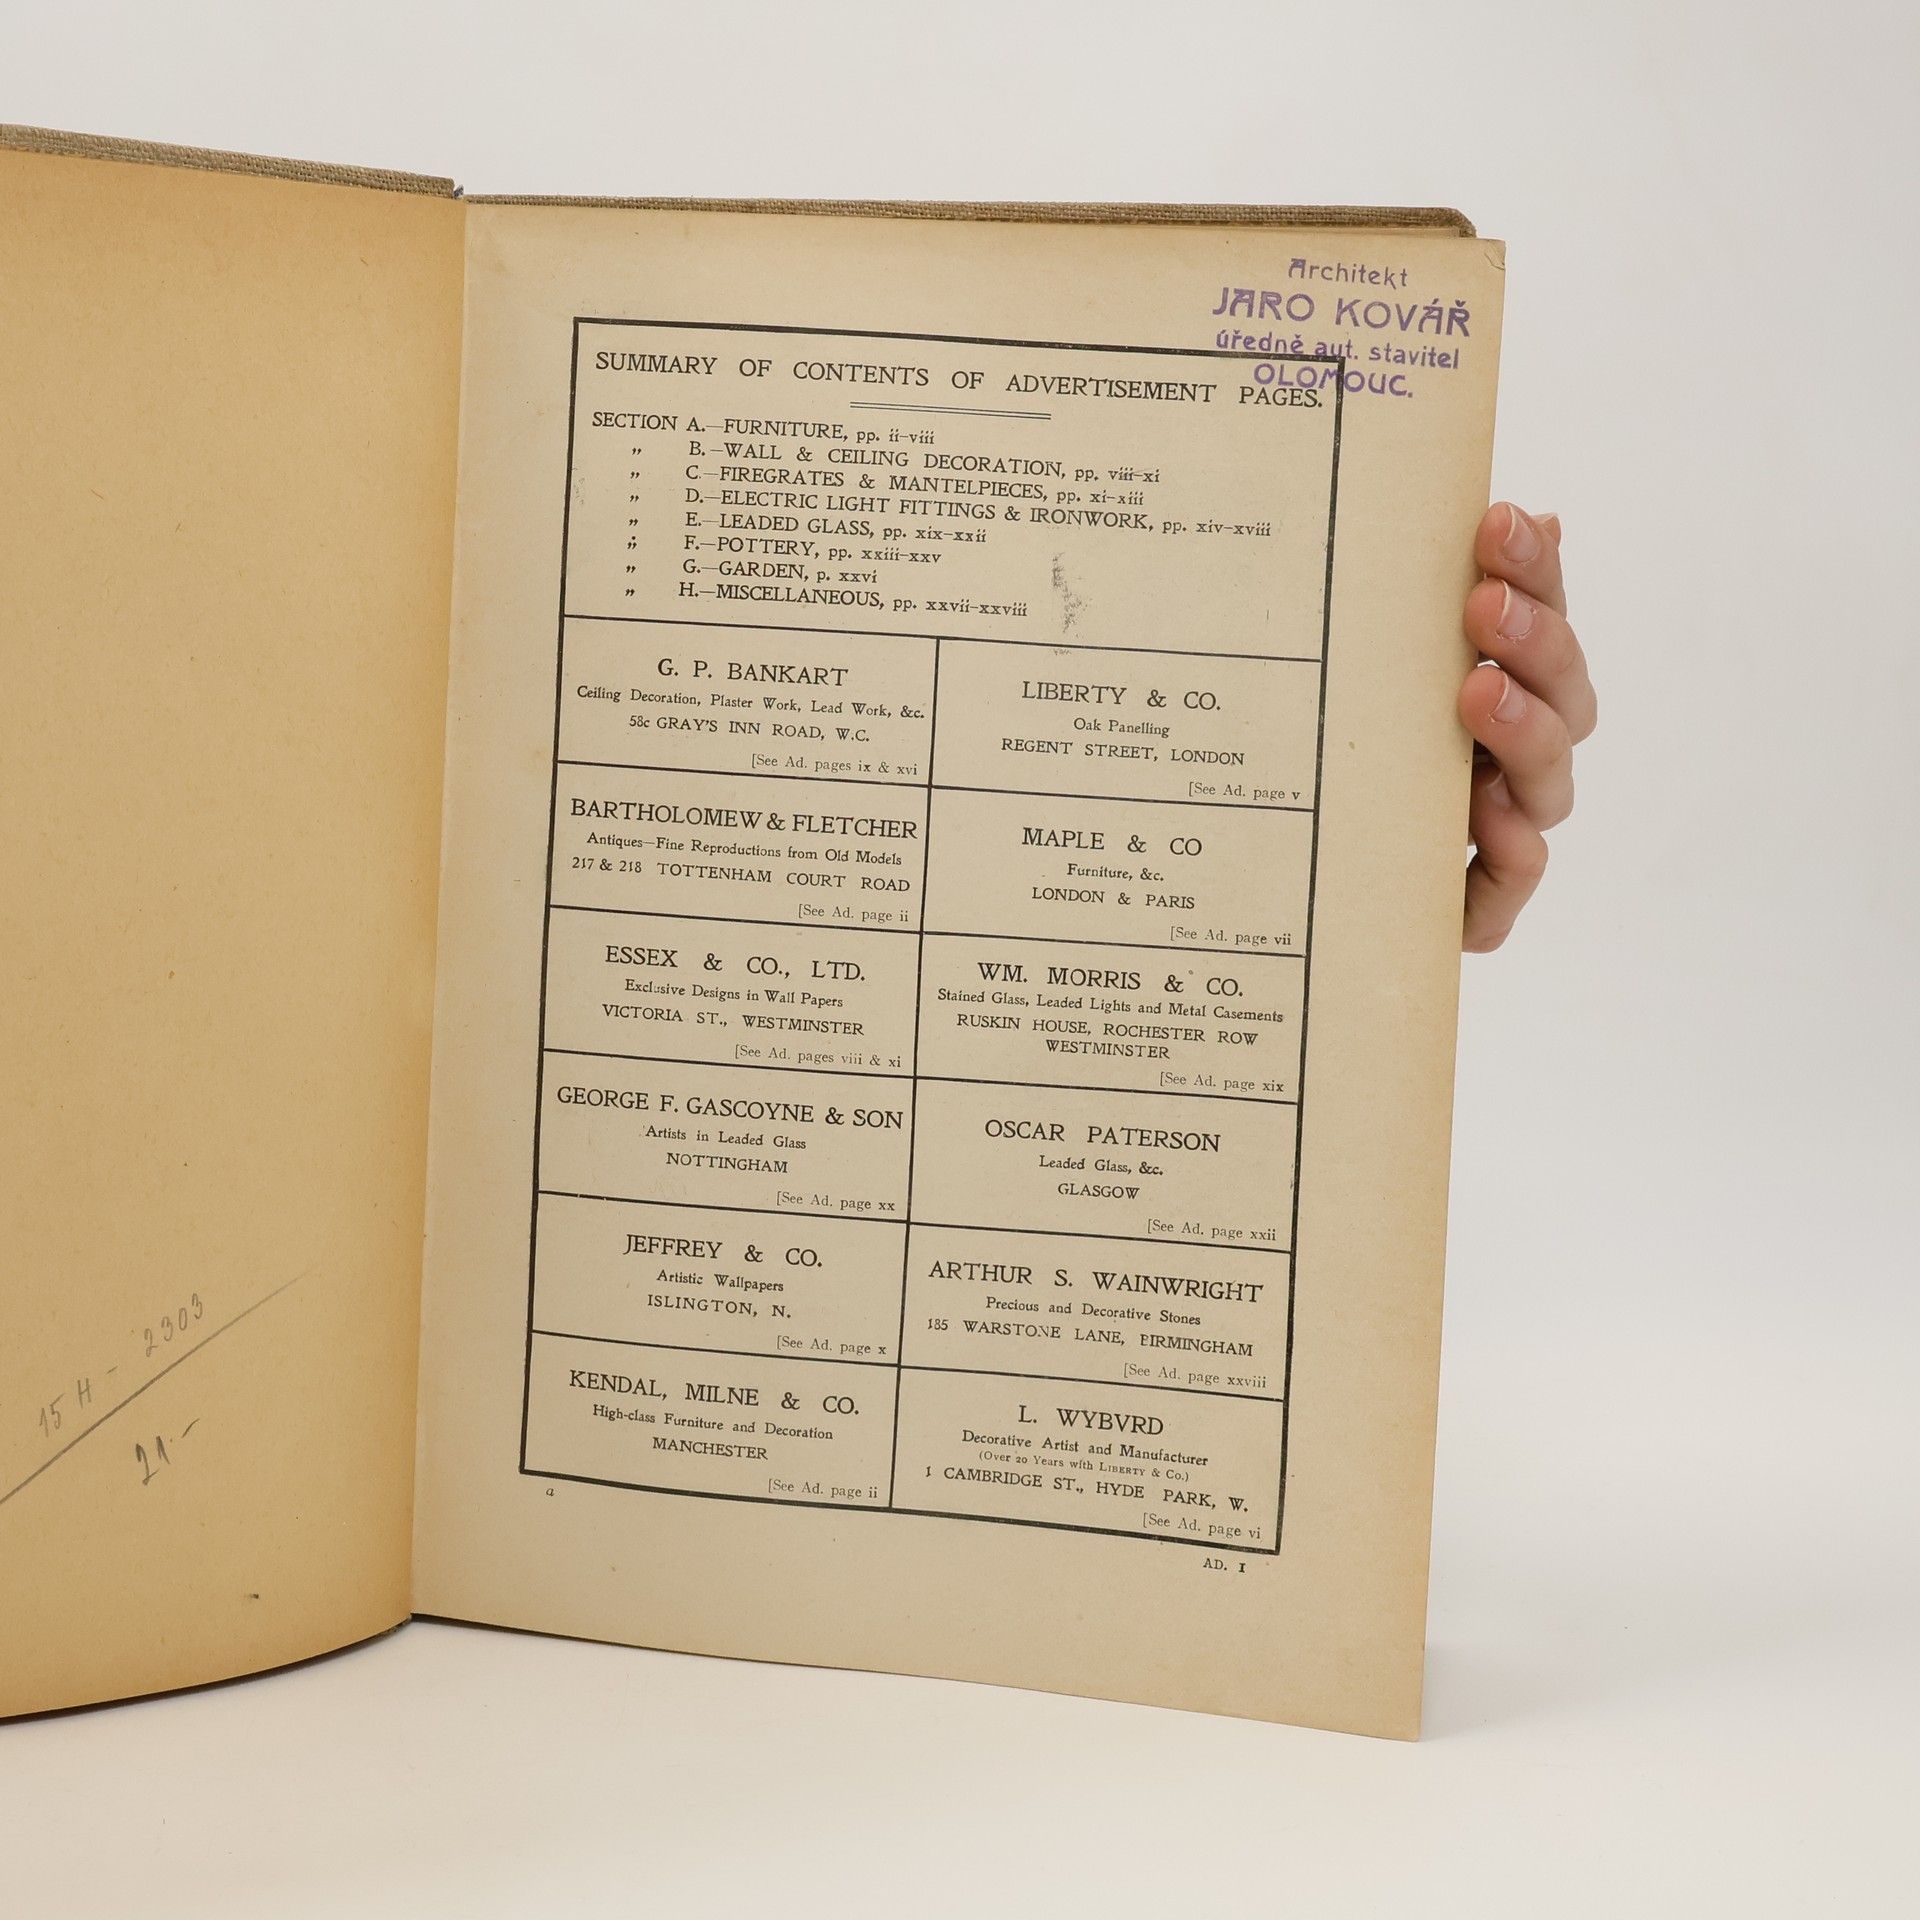 Architekt
JARO KOVÁŘ
úředně aut. stavitel
OLOMOUC.
SUMMARY OF CONTENTS OF ADVERTISEMENT PAGES.
SECTION A.—FURNITURE, pp. ii-viii
„ B.—WALL & CEILING DECORATION, pp. viii-xi
„ C.—FIREGRATES & MANTELPIECES, pp. xi-xiii
„ D.—ELECTRIC LIGHT FITTINGS & IRONWORK, pp. xiv-xviii
„ E.—LEADED GLASS, pp. xix-xxii
„ F.—POTTERY, pp. xxiii-xxv
„ G.—GARDEN, p. xxvi
„ H.—MISCELLANEOUS, pp. xxvii-xxviii
G. P. BANKART
Ceiling Decoration, Plaster Work, Lead Work, &c.
58c GRAY'S INN ROAD, W.C.
[See Ad. pages ix & xvi
BARTHOLOMEW & FLETCHER
Antiques—Fine Reproductions from Old Models
217 & 218 TOTTENHAM COURT ROAD
[See Ad. page ii
ESSEX & CO., LTD.
Exclusive Designs in Wall Papers
VICTORIA ST., WESTMINSTER
[See Ad. pages viii & xi
GEORGE F. GASCOYNE & SON
Artists in Leaded Glass
NOTTINGHAM
[See Ad. page xx
JEFFREY & CO.
Artistic Wallpapers
ISLINGTON, N.
[See Ad. page x
KENDAL, MILNE & CO.
High-class Furniture and Decoration
MANCHESTER
[See Ad. page ii
LIBERTY & CO.
Oak Panelling
REGENT STREET, LONDON
[See Ad. page v
MAPLE & CO
Furniture, &c.
LONDON & PARIS
[See Ad. page vii
WM. MORRIS & CO.
Stained Glass, Leaded Lights and Metal Casements
RUSKIN HOUSE, ROCHESTER ROW
WESTMINSTER
[See Ad. page xix
OSCAR PATERSON
Leaded Glass, &c.
GLASGOW
[See Ad. page xxii
ARTHUR S. WAINWRIGHT
Precious and Decorative Stones
185 WARSTONE LANE, BIRMINGHAM
[See Ad. page xxviii
L. WYBVRD
Decorative Artist and Manufacturer
(Over 20 Years with LIBERTY & Co.)
1 CAMBRIDGE ST., HYDE PARK, W.
[See Ad. page vi
a
AD. 1
15 H - 2303
21.-